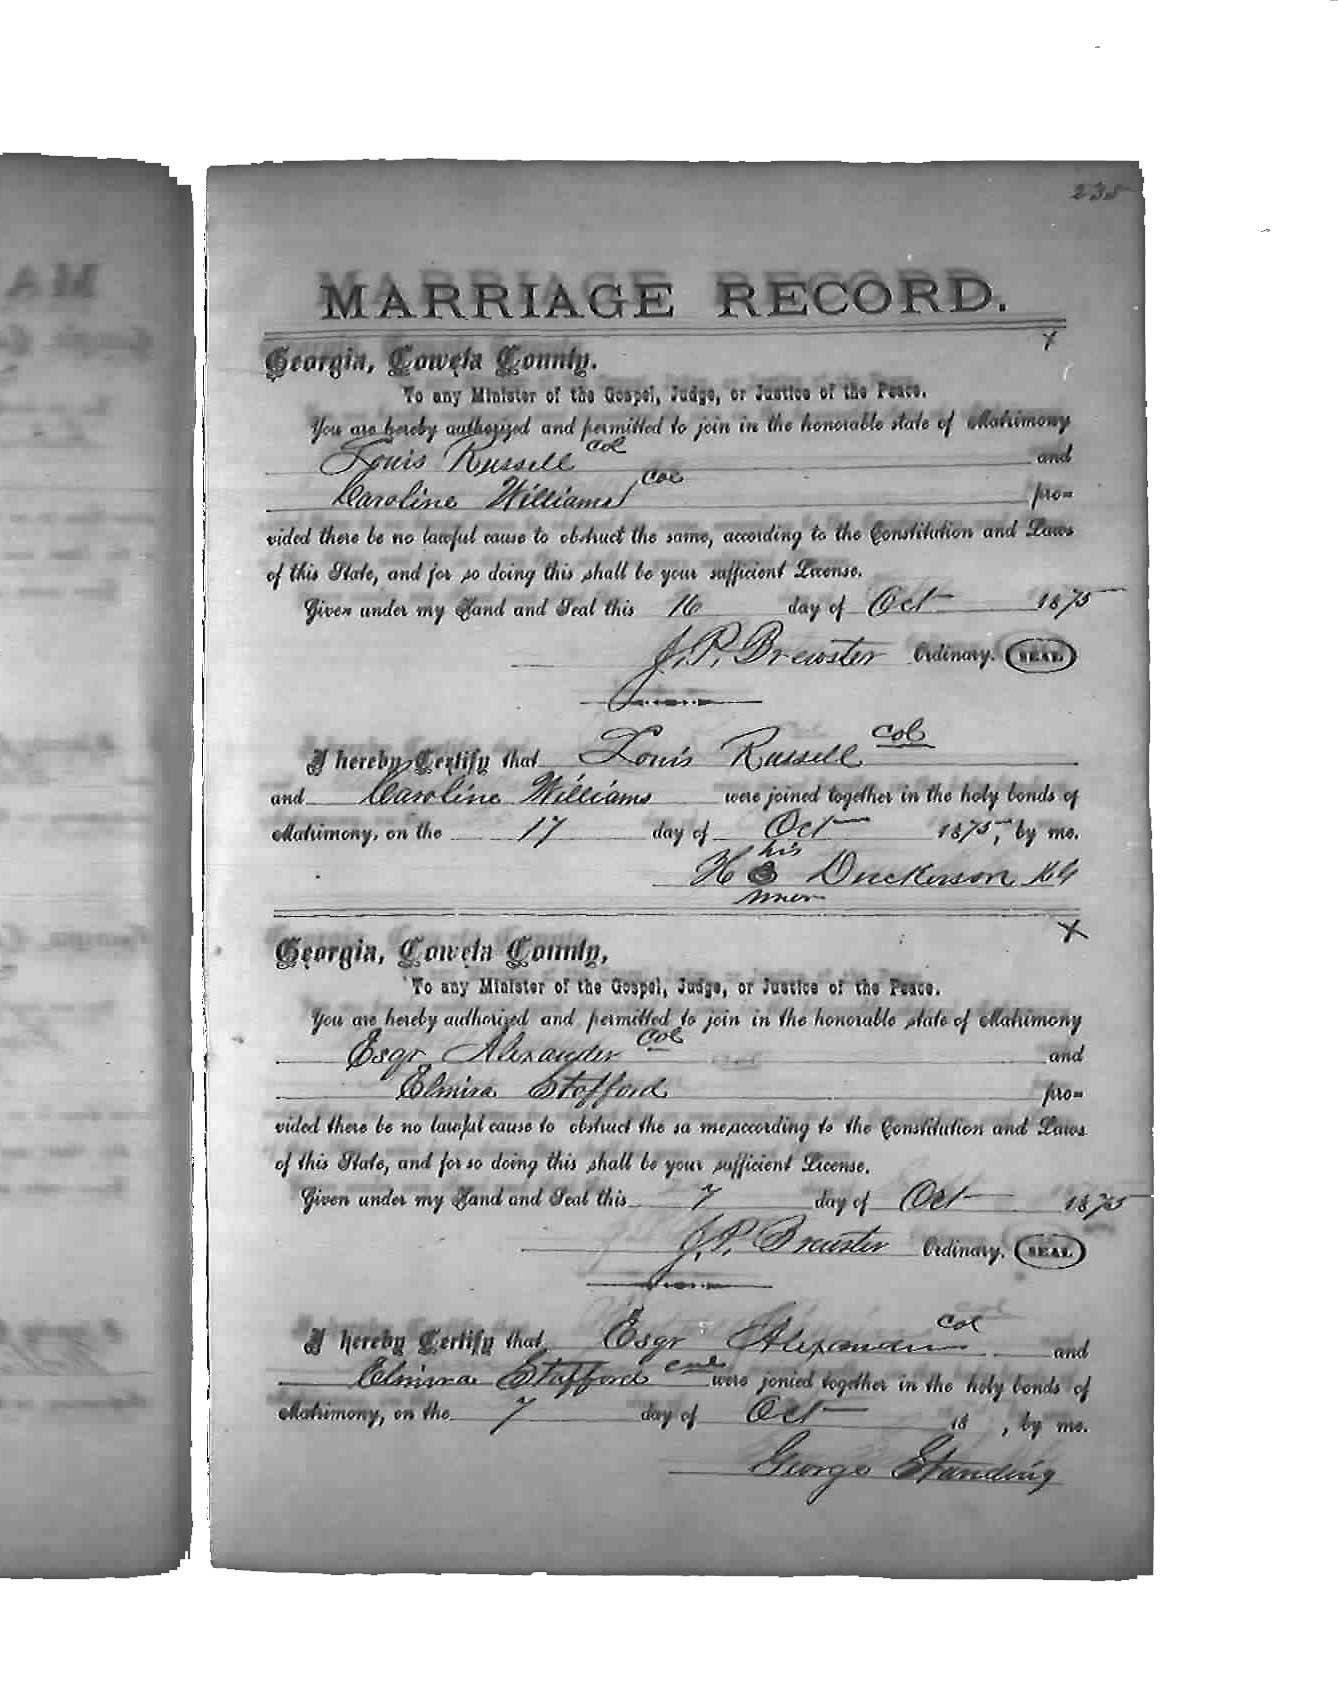 235
MARRIAGE RECORD.
x
Georgia, Coweta County.
To any Minister of the Gospel, Judge, or Justice of the Peace.
You are hereby authorized and permitted to join in the honorable state of Matrimony
Louis Russell col and
Caroline Williams col pro=
vided there be no lawful cause to obstruct the same, according to the Constitution and Laws
of this State, and for so doing this shall be your sufficient License.
Given under my Hand and Seal this 16 day of Oct 1875
J. P. Brewster Ordinary. SEAL
I hereby Certify that Louis Russell col
and Caroline Williams were joined together in the holy bonds of
Matrimony, on the 17 day of Oct 1875, by me.
his
H Duckerson
Georgia, Coweta County,
x
To any Minister of the Gospel, Judge, or Justice of the Peace.
You are hereby authorized and permitted to join in the honorable state of Matrimony
Esqr Alexander col and
Elmira Stafford pro=
vided there be no lawful cause to obstruct the sa me, according to the Constitution and Laws
of this State, and for so doing this shall be your sufficient License.
Given under my Hand and Seal this 7 day of Oct 1875
J. P. Brewster Ordinary. SEAL
I hereby Certify that Esqr Alexander col and
Elmira Stafford col were jonied together in the holy bonds of
Matrimony, on the 7 day of Oct 18 , by me.
George Standing